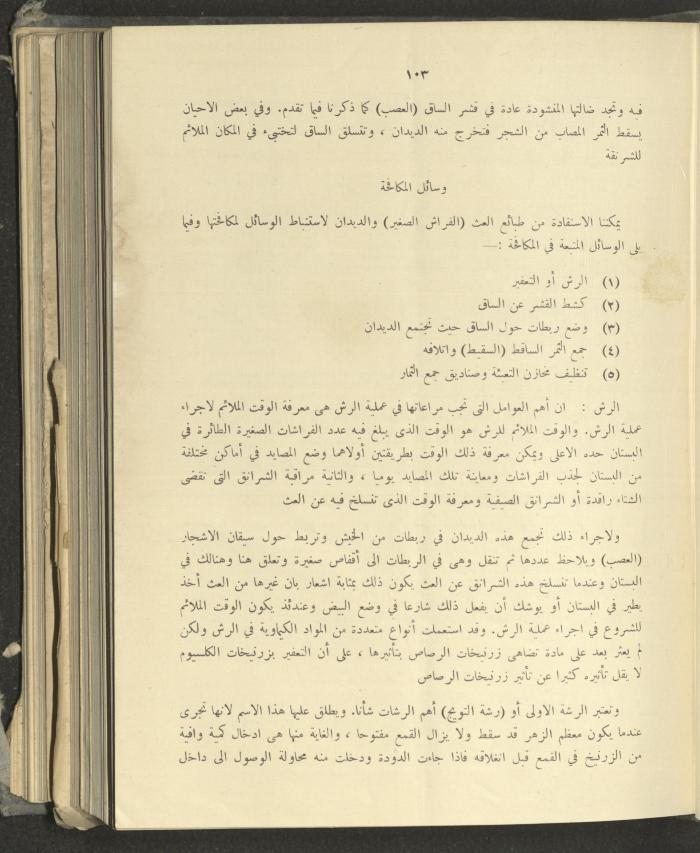 ١٠٣
فيه وتجد ضالتها المنشودة عادة في قشر الساق (العصب) كما ذكرنا فيما تقدم. وفي بعض الاحيان
يسقط الثمر المصاب من الشجر فتخرج منه الديدان ، وتتسلق الساق لتختبىء في المكان الملائم
للشرنقة
وسائل المكافحة
يمكننا الاستفادة من طبائع العث (الفراش الصغير) والديدان لاستنباط الوسائل لمكافحتها وفيما
يلى الوسائل المتبعة في المكافحة :—
(١) الرش أو التعفير
(٢) كشط القشر عن الساق
(٣) وضع ربطات حول الساق حيث تجتمع الديدان
(٤) جمع الثمر الساقط (السقيط) واتلافه
(٥) تنظيف مخازن التعبئة وصناديق جمع الثمار
الرش : ان أهم العوامل التى تجب مراعاتها في عملية الرش هى معرفة الوقت الملائم لاجراء
عملية الرش. والوقت الملائم للرش هو الوقت الذى يبلغ فيه عدد الفراشات الصغيرة الطائرة في
البستان حده الاعلى ويمكن معرفة ذلك الوقت بطريقتين أولاهما وضع المصايد في أماكن مختلفة
من البستان لجذب الفراشات ومعاينة تلك المصايد يوميا ، والثانية مراقبة الشرانق التى تقضى
الشتاء راقدة أو الشرانق الصيفية ومعرفة الوقت الذى تنسلخ فيه عن العث
ولاجراء ذلك تجمع هذه الديدان في ربطات من الخيش وتربط حول سيقان الاشجار
(العصب) ويلاحظ عددها ثم تنقل وهى في الربطات الى أقفاص صغيرة وتعلق هنا وهنالك في
البستان وعندما تنسلخ هذه الشرانق عن العث يكون ذلك بمثابة اشعار بان غيرها من العث أخذ
يطير في البستان أو يوشك أن يفعل ذلك شارعا في وضع البيض وعندئذ يكون الوقت الملائم
للشروع في اجراء عملية الرش. وقد استعملت أنواع متعددة من المواد الكيماوية في الرش ولكن
لم يعثر بعد على مادة تضاهى زرنيخات الرصاص بتأثيرها ، على أن التعفير بزرنيخات الكلسيوم
لا يقل تأثيره كثيرا عن تأثير زرنيخات الرصاص
وتعتبر الرشة الاولى أو (رشة التويج) أهم الرشات شأنا. ويطلق عليها هذا الاسم لانها تجرى
عندما يكون معظم الزهر قد سقط ولا يزال القمع مفتوحا ، والغاية منها هى ادخال كمية وافية
من الزرنيخ في القمع قبل انغلاقه فاذا جاءت الدودة ودخلت منه محاولة الوصول الى داخل